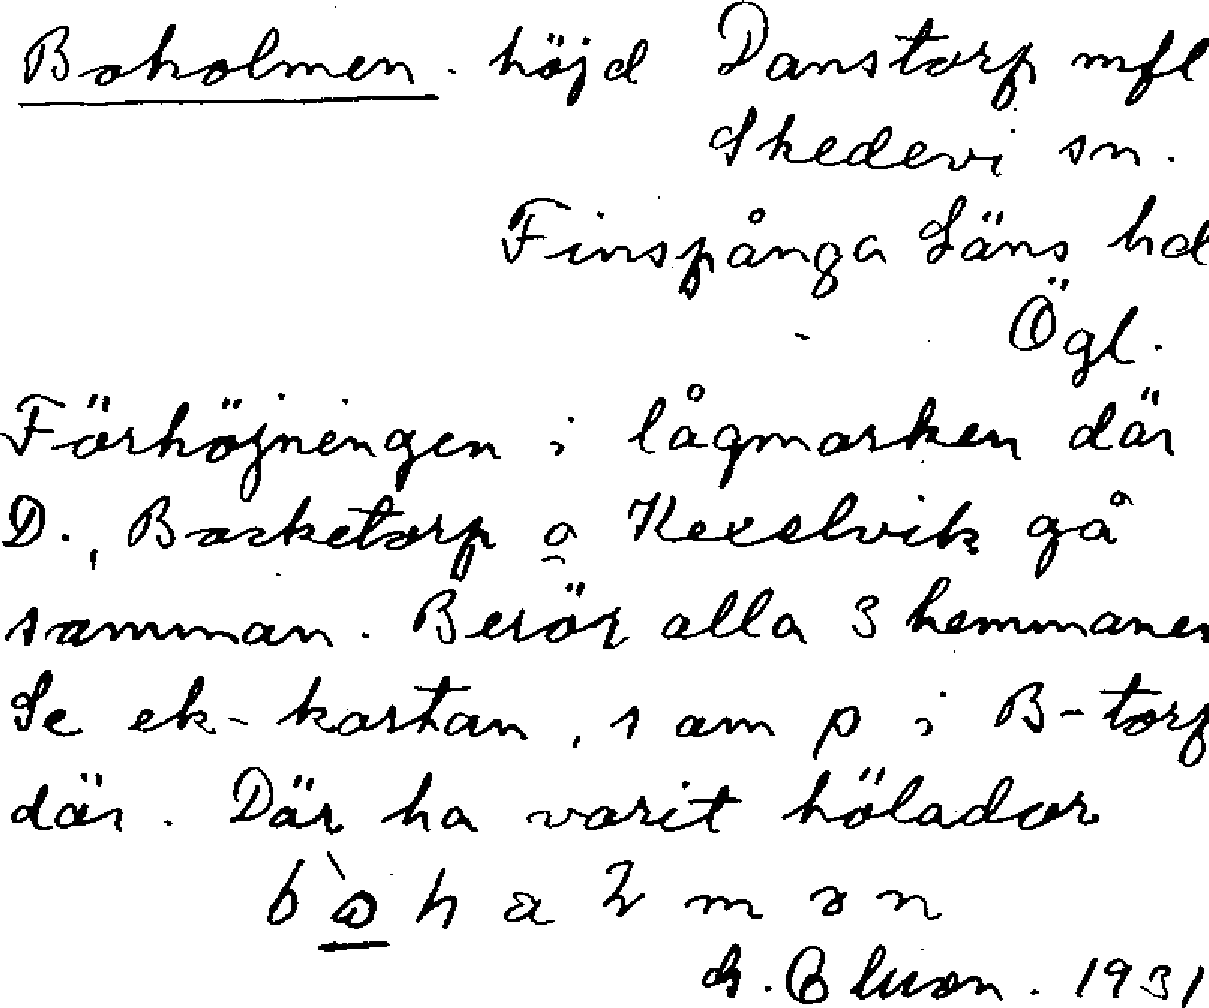 Boholmen. höjd Danstorp mfl
Skedevi sn.
Finspånga Läns hd
Ögl.
Förhöjningen i lågmarken där
D., Backetorp o Kexelvik gå
samman. Berör alla 3 hemmanen
Se ek-kartan, 1 om p i B-torp
där. Där ha varit hölador